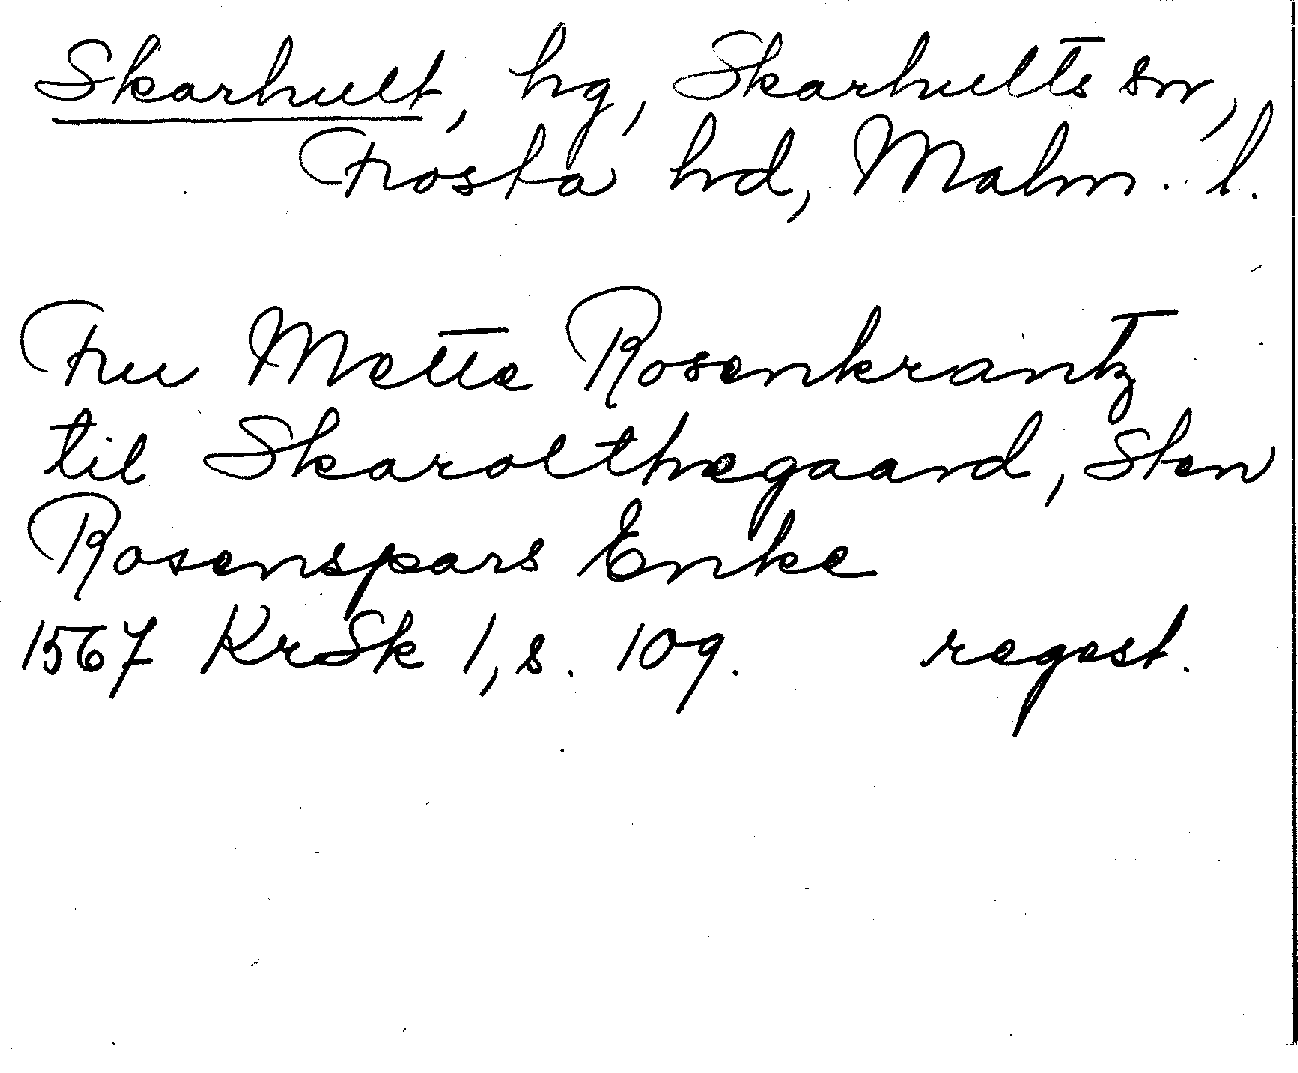 Skarhult, hg, Skarhults sn,
Frosta hd, Malm. l.
Fru Mette Rosenkrantz
til Skarolthegaard, Sten
Rosenspars Enke
1567 KrSk 1, s. 109. regest.